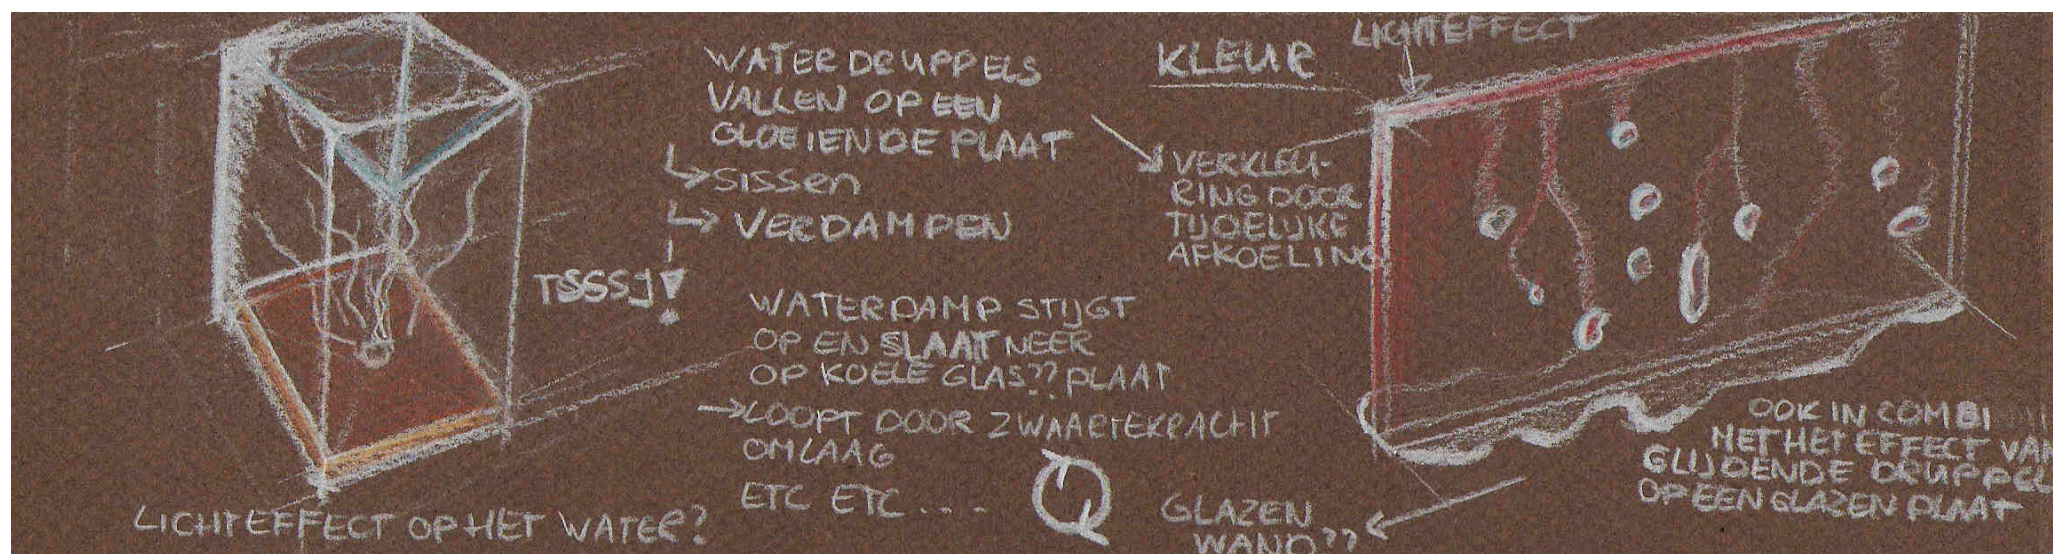 WATERDRUPPELS
VALLEN OP EEN
GLOEIENDE PLAAT
SISSEN
VERDAMPEN
WATERDAMP STIJGT
OP EN SLAAT NEER
OP KOELE GLAS?? PLAAT
LOOPT DOOR ZWAARTEKRACHT
OMLAAG
ETC ETC....
LICHTEFFECT OP HET WATER?
KLEUR
LICHTEFFECT
VERKLEU-
RING DOOR
TIJDELIJKE
AFKOELING
OOK IN COMBI
MET HET EFFECT VAN
GLIJDENDE DRUPPEL
OP EEN GLAZEN PLAAT
GLAZEN
WAND??